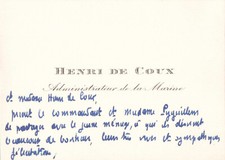 HENRI DE COUX
Administrateur de la Marine
et madame Henri de Coux,
prient le commandant et madame
de partager avec le jeune ménage, à qui ils désirent
beaucoup de bonheur, leurs très vives et sympathiques
félicitations,